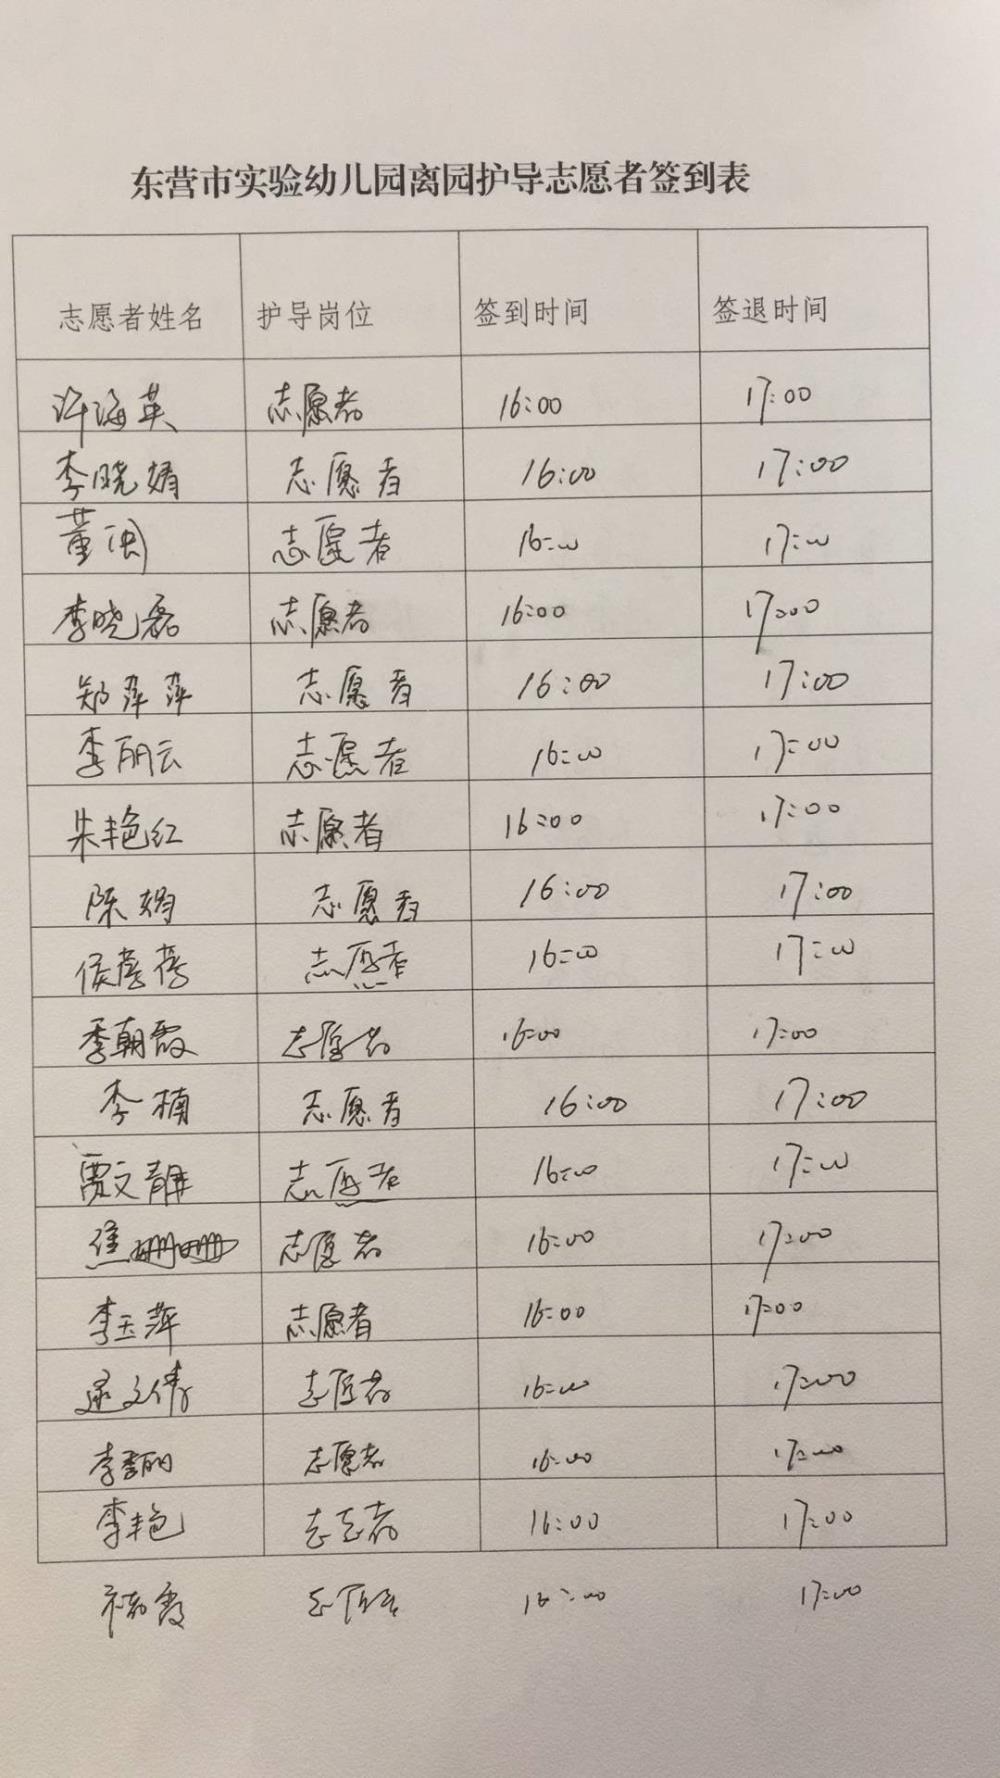 东营市实验幼儿园离园护导志愿者签到表
志愿者姓名 护导岗位 签到时间 签退时间
许海英 志愿者 16:00 17:00
李晓娟 志愿者 16:00 17:00
董闽 志愿者 16:00 17:00
李晓磊 志愿者 16:00 17:00
郑萍萍 志愿者 16:00 17:00
李丽云 志愿者 16:00 17:00
朱艳红 志愿者 16:00 17:00
陈娟 志愿者 16:00 17:00
侯蓓蓓 志愿者 16:00 17:00
季朝霞 志愿者 16:00 17:00
李楠 志愿者 16:00 17:00
贾文静 志愿者 16:00 17:00
焦珊珊 志愿者 16:00 17:00
李玉萍 志愿者 16:00 17:00
逯文倩 志愿者 16:00 17:00
李秀丽 志愿者 16:00 17:00
李艳 志愿者 16:00 17:00
志愿者 16:00 17:00